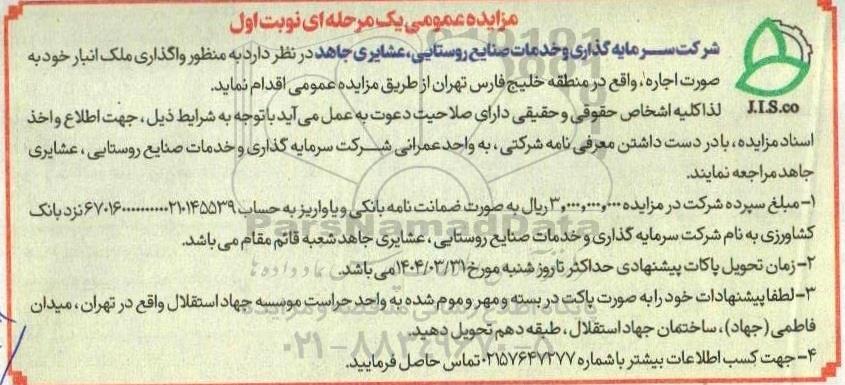 مزایده عمومی یک مرحله ای نوبت اول
شرکت سرمایه گذاری و خدمات صنایع روستایی، عشایری جاهد در نظر دارد به منظور واگذاری ملک انبار خود به
صورت اجاره، واقع در منطقه خلیج فارس تهران از طریق مزایده عمومی اقدام نماید.
J.I.S.co
لذا کلیه اشخاص حقوقی و حقیقی دارای صلاحیت دعوت به عمل می آید با توجه به شرایط ذیل، جهت اطلاع و اخذ
اسناد مزایده، با در دست داشتن معرفی نامه شرکتی، به واحد عمرانی شرکت سرمایه گذاری و خدمات صنایع روستایی، عشایری
جاهد مراجعه نمایند.
۱- مبلغ سپرده شرکت در مزایده ۳,۰۰۰,۰۰۰,۰۰۰ ریال به صورت ضمانت نامه بانکی و یا واریز به حساب نزد بانک
کشاورزی به نام شرکت سرمایه گذاری و خدمات صنایع روستایی، عشایری جاهد شعبه قائم مقام می باشد.
۲- زمان تحویل پاکات پیشنهادی حداکثر تا روز شنبه مورخ ۱۴۰۴/۰۳/۳۱ می باشد.
۳- لطفا پیشنهادات خود را به صورت پاکت در بسته و مهر و موم شده به واحد حراست موسسه جهاد استقلال واقع در تهران، میدان
فاطمی (جهاد)، ساختمان جهاد استقلال، طبقه دهم تحویل دهید.
۴- جهت کسب اطلاعات بیشتر با شماره ۰۲۱۵۷۶۴۷۲۷۷ تماس حاصل فرمایید.
ParsNamadData
پایگاه اطلاع رسانی مناقصه و مزایده
۰۲۱-۸۸۳۴۹۶۷۰-۵